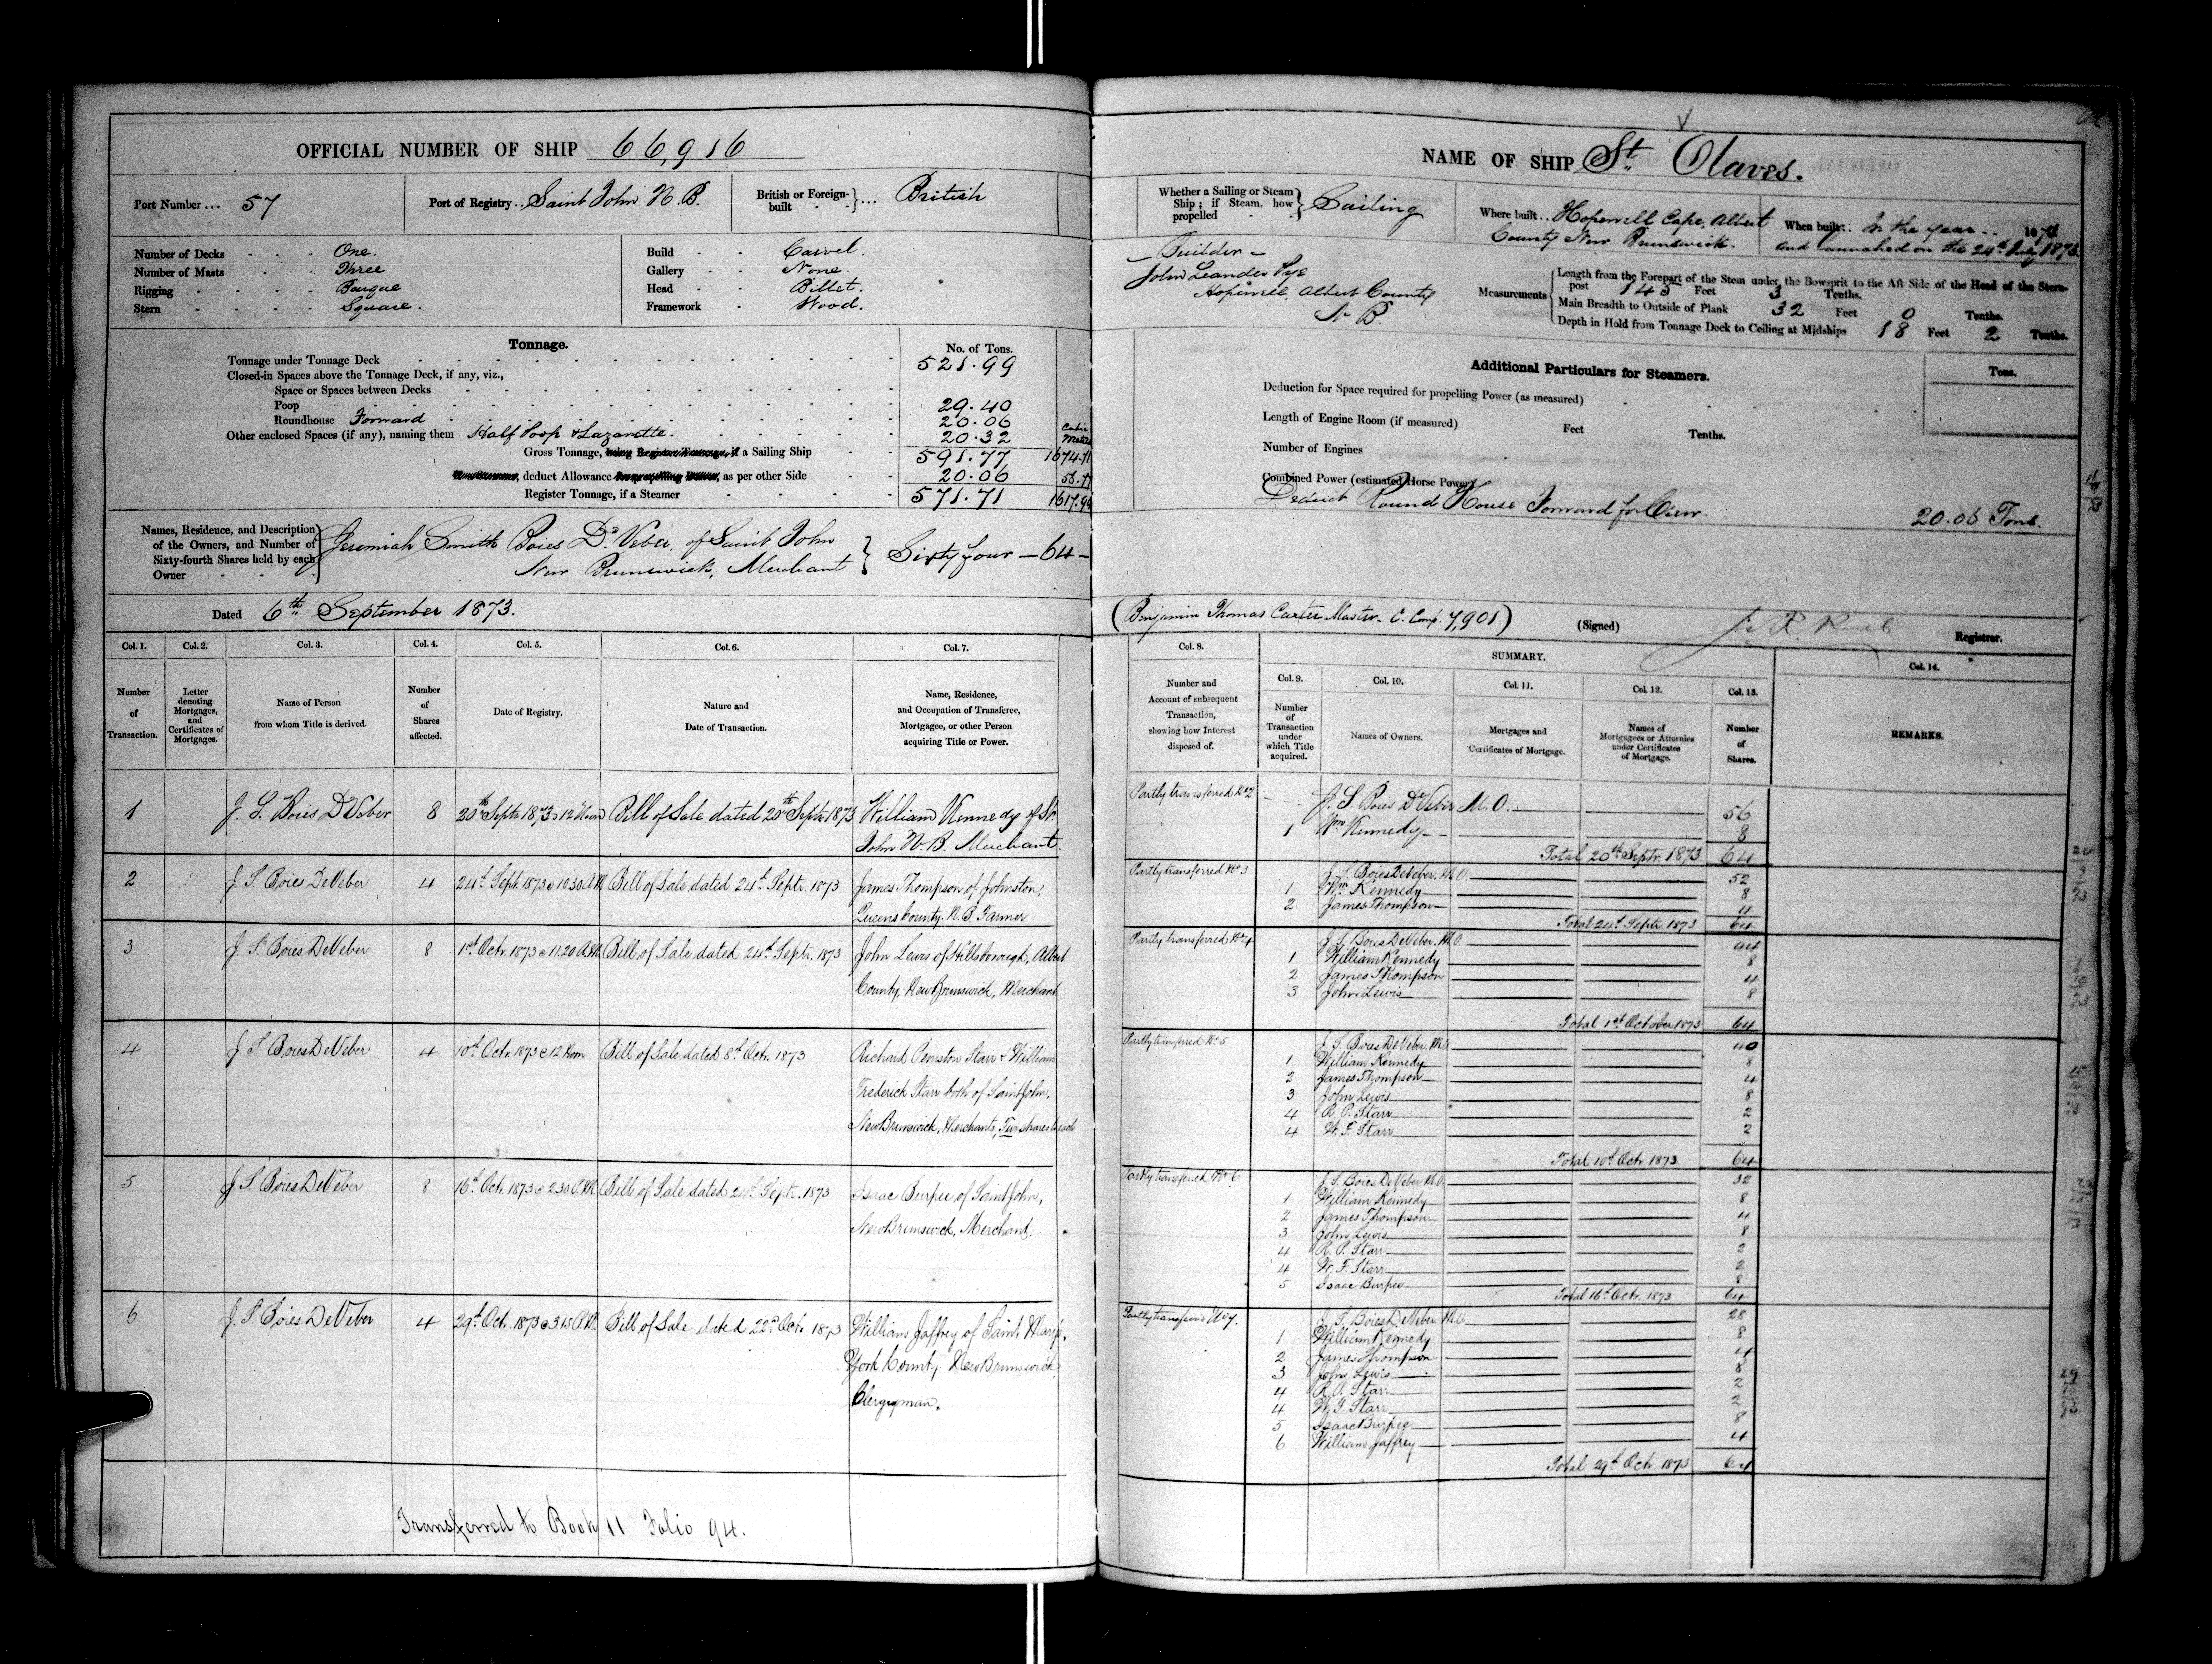 OFFICIAL NUMBER OF SHIP 66,916
Port Number ... 57
Port of Registry .. Saint John N.B.
British or Foreign-built } ... British
Number of Decks - - - One.
Number of Masts - - - Three
Rigging - - - - Barque
Stern - - - - Square.
Build - - Carvel.
Gallery - - None.
Head - - Billet.
Framework - Wood.
Tonnage.
No. of Tons.
Tonnage under Tonnage Deck 521.99
Closed-in Spaces above the Tonnage Deck, if any, viz.,
Space or Spaces between Decks
Poop 29.40
Roundhouse Forward 20.06
Other enclosed Spaces (if any), naming them Half Poop & Lazarette. 20.32
Cubic Metres
Gross Tonnage, being Register Tonnage, if a Sailing Ship 591.77 1674.71
If a Steamer, deduct Allowance for propelling Power, as per other Side 20.06
Register Tonnage, if a Steamer 571.71 1617.94
Names, Residence, and Description of the Owners, and Number of Sixty-fourth Shares held by each Owner
Jeremiah Smith Boies DeVeber of Saint John
New Brunswick, Merchant } Sixty four — 64 —
Dated 6th September 1873.
Col. 1. Col. 2. Col. 3. Col. 4. Col. 5. Col. 6. Col. 7.
Number of Transaction.
Letter denoting Mortgages, and Certificates of Mortgages.
Name of Person from whom Title is derived.
Number of Shares affected.
Date of Registry.
Nature and Date of Transaction.
Name, Residence, and Occupation of Transferee, Mortgagee, or other Person acquiring Title or Power.
1 J. S. Boies DeVeber 8 20th Septr 1873 @ 12 Noon Bill of Sale dated 20th Septr 1873 William Kennedy of St.
John N.B. Merchant.
2 J. S. Boies DeVeber 4 24th Septr 1873 @ 10.30 A.M. Bill of Sale dated 24th Septr. 1873 James Thompson of Johnston,
Queens County. N.B. Farmer
3 J. S. Boies DeVeber 8 1st Octr. 1873 @ 11.20 A.M. Bill of Sale dated 24th Septr. 1873 John Lewis of Hillsborough, Albert
County, New Brunswick, Merchant
4 J S Boies DeVeber 4 10th Octr 1873 @ 12 Noon Bill of Sale dated 8th Octr. 1873 Richard Penniston Starr & William
Frederick Starr both of Saint John,
New Brunswick, Merchants, Two shares to each
5 J S Boies DeVeber 8 16th Octr. 1873 @ 2.30 P.M. Bill of Sale dated 24th Septr. 1873 Isaac Burpee, of Saint John,
New Brunswick, Merchant.
6 J. S. Boies DeVeber 4 29th Octr. 1873 @ 3.15 P.M. Bill of Sale dated 22nd Octr 1873 William Jaffrey of Saint Marys,
York County, New Brunswick,
Clergyman.
Transferred to Book 11 Folio 94.
NAME OF SHIP St. Olaves.
Whether a Sailing or Steam Ship; if Steam, how propelled } Sailing
Where built .. Hopewell Cape, Albert
County New Brunswick.
When built .. In the year .. 1873
and launched on the 24th July 1873.
— Builder —
John Leander Pye
Hopewell, Albert County
N. B.
Measurements
Length from the Forepart of the Stem under the Bowsprit to the Aft Side of the Head of the Stern-
post 145 Feet 3 Tenths.
Main Breadth to Outside of Plank 32 Feet 0 Tenths.
Depth in Hold from Tonnage Deck to Ceiling at Midships 18 Feet 2 Tenths.
Additional Particulars for Steamers.
Tons.
Deduction for Space required for propelling Power (as measured)
Length of Engine Room (if measured) Feet Tenths.
Number of Engines
Combined Power (estimated Horse Power)
Deduct Round House Forward for Crew. 20.06 Tons.
(Benjamin Thomas Carter Master. C. Comp. 7,901)
(Signed) Registrar.
Col. 8. SUMMARY. Col. 14.
Col. 9. Col. 10. Col. 11. Col. 12. Col. 13.
Number and Account of subsequent Transaction, showing how Interest disposed of.
Number of Transaction under which Title acquired.
Names of Owners.
Mortgages and Certificates of Mortgage.
Names of Mortgagees or Attornies under Certificates of Mortgage.
Number of Shares.
REMARKS.
Partly transferred No 2 J. S Boies DeVeber M.O. 56
1 Wm Kennedy 8
Total 20th Septr. 1873 64
Partly transferred No 3 J. S. Boies DeVeber. M.O. 52
1 Wm Kennedy 8
2 James Thompson 4
Total 24th Septr 1873 64
Partly transferred No 4 J. S. Boies DeVeber. M.O. 44
1 William Kennedy 8
2 James Thompson 4
3 John Lewis 8
Total 1st October 1873 64
Partly transferred No 5 J. S. Boies DeVeber. M.O. 40
1 William Kennedy 8
2 James Thompson 4
3 John Lewis 8
4 R. P. Starr 2
4 W. F. Starr 2
Total 10th Octr. 1873 64
Partly transferred No 6 J. S. Boies DeVeber. M.O. 32
1 William Kennedy 8
2 James Thompson 4
3 John Lewis 8
4 R. P. Starr 2
4 W. F. Starr 2
5 Isaac Burpee 8
Total 16th Octr. 1873 64
Partly transferred No 7. J. S. Boies DeVeber M.O. 28
1 William Kennedy 8
2 James Thompson 4
3 John Lewis 8
4 R. P. Starr 2
4 W. F. Starr 2
5 Isaac Burpee 8
6 William Jaffrey 4
Total 29th Octr. 1873 64